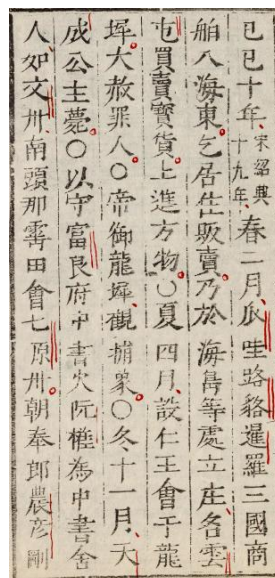 己巳十年宋紹興十九年春二月爪哇路貉暹羅三國商
舶入海東乞居住販賣乃於海島等處立庄名雲
屯買賣寶貨上進方物○夏四月設仁王會于龍
墀大赦罪人○帝御龍墀觀捕象○冬十一月天
成公主薨○以守富良府中書火阮權為中書舍
人如文州南頭那雩田會七原州朝奉郎農彦剛